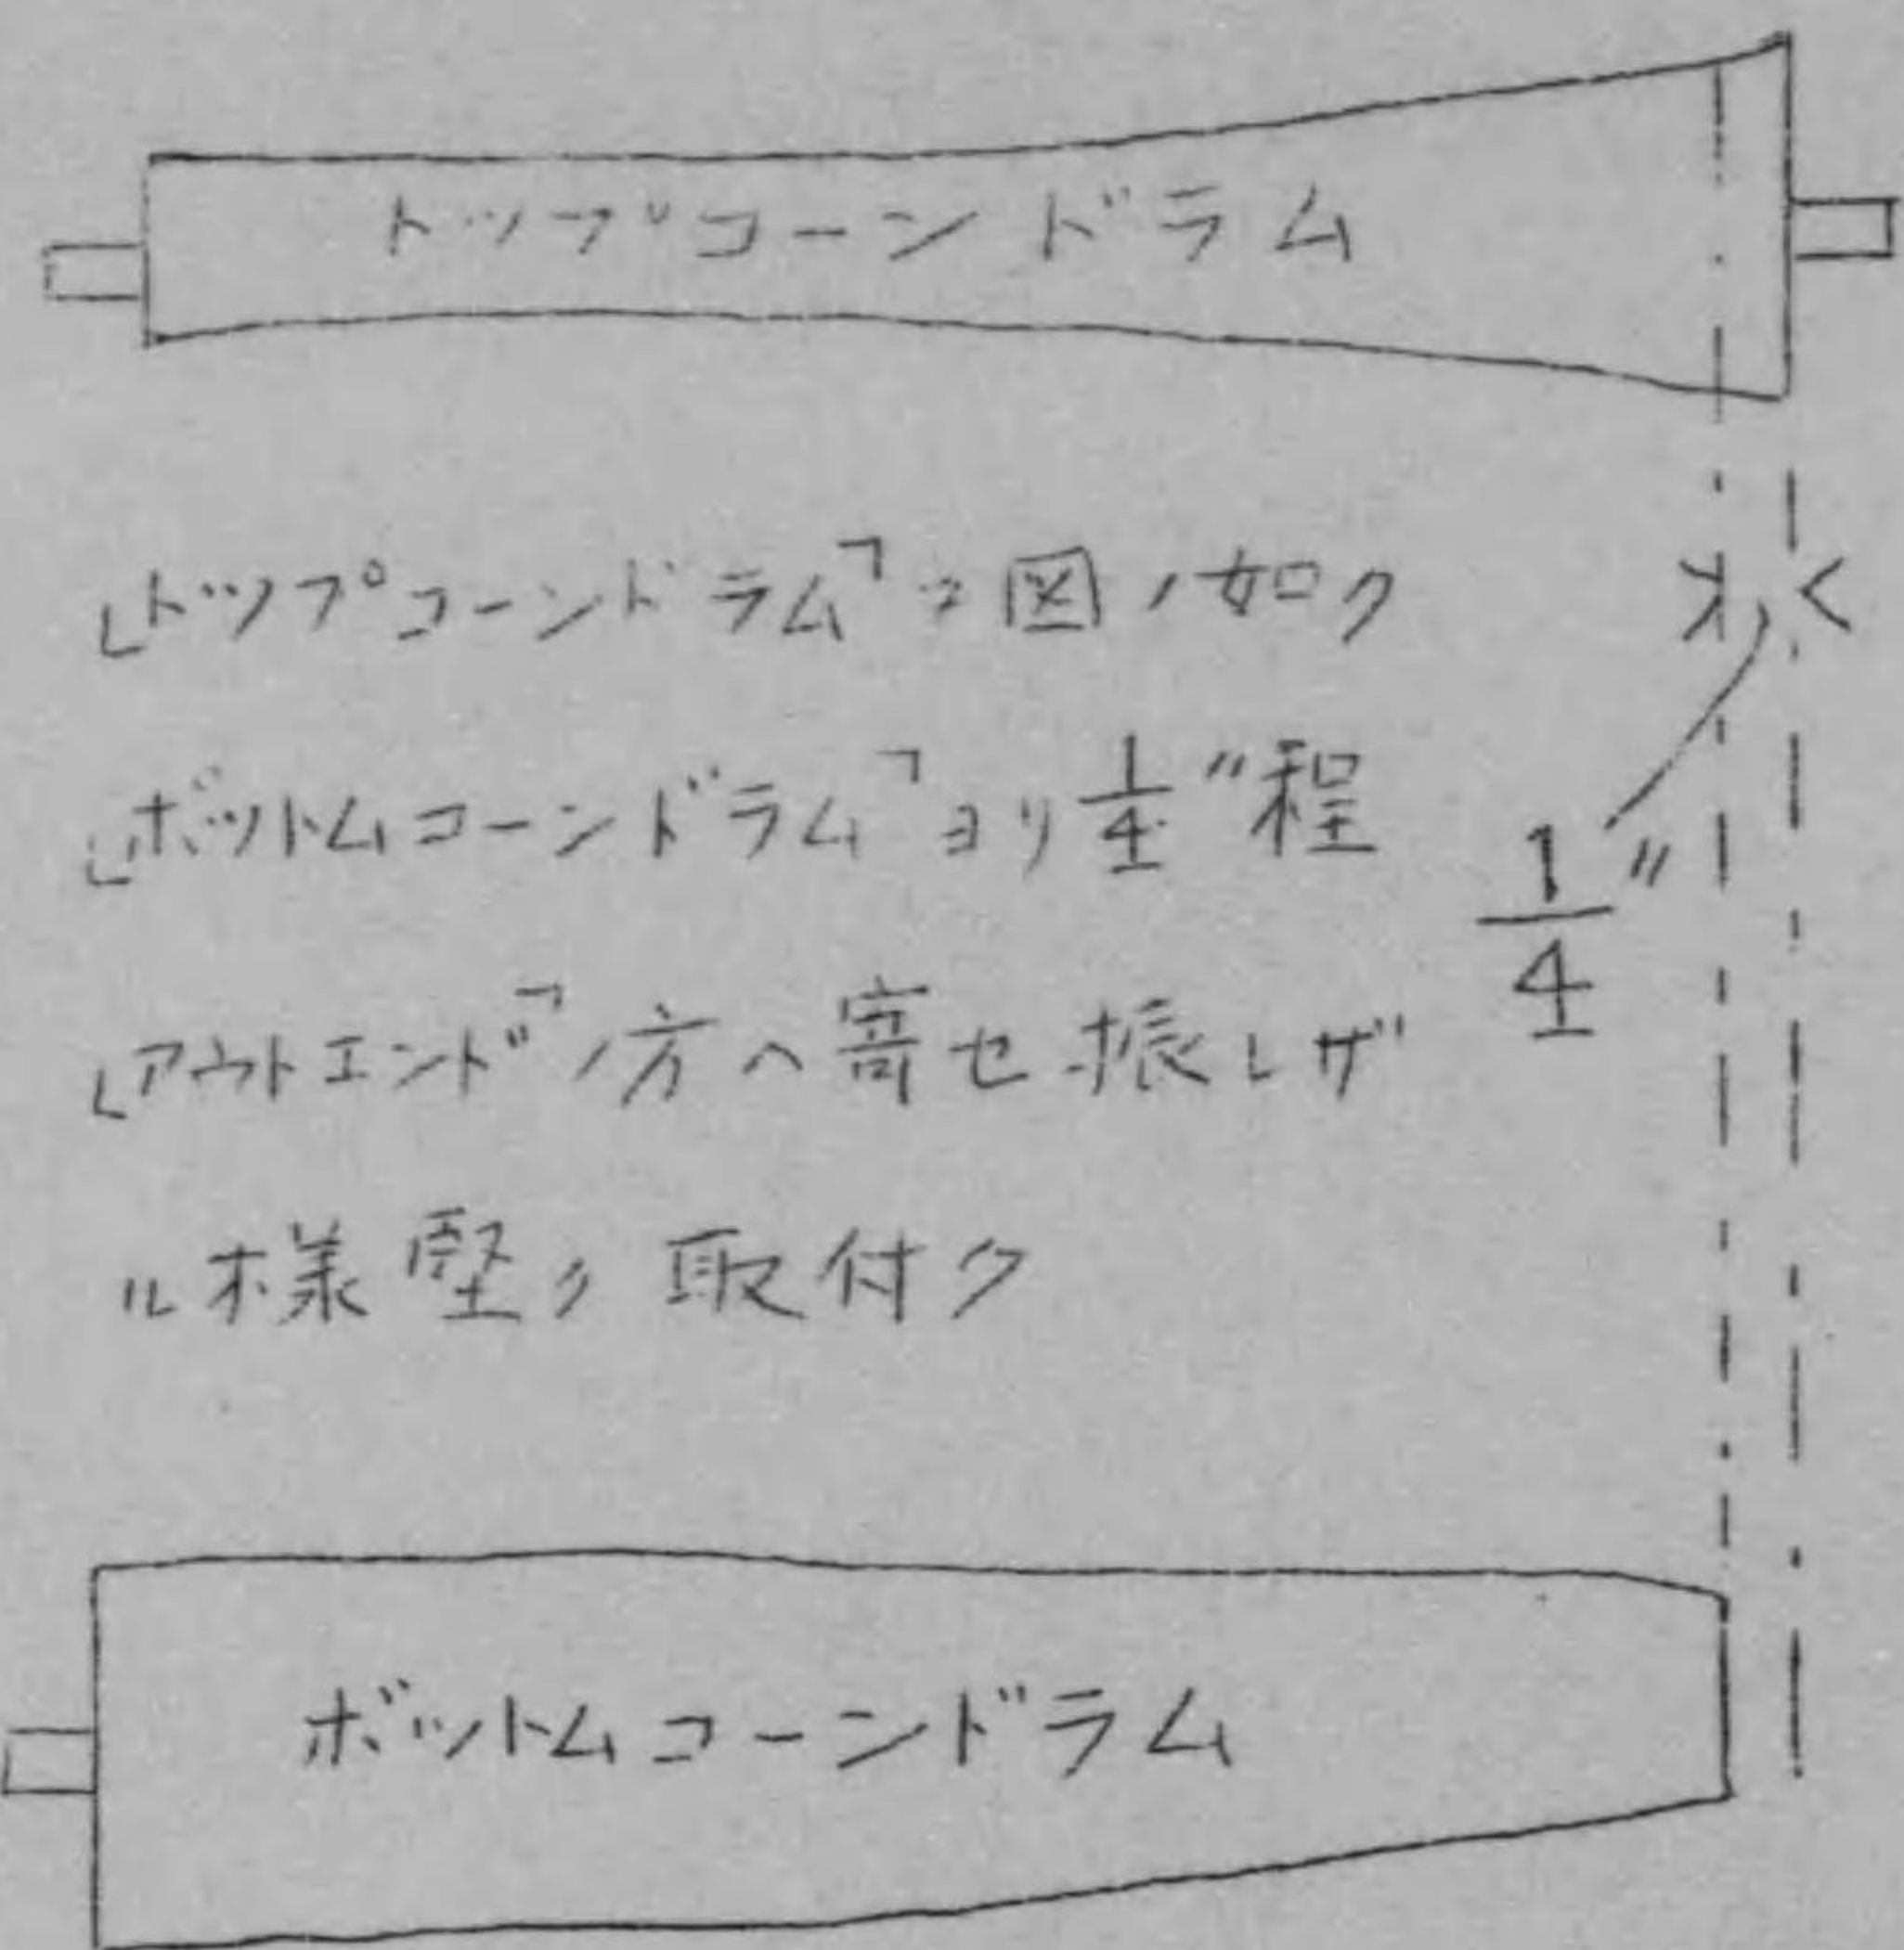 トップコーンドラム
「トップコーンドラム」ヲ図ノ如ク
「ボットムコーンドラム」ヨリ1/4"程
1/4"
「アウトエンド」ノ方ヘ寄セ振レザ
ル様堅ク取付ク
ボットムコーンドラム